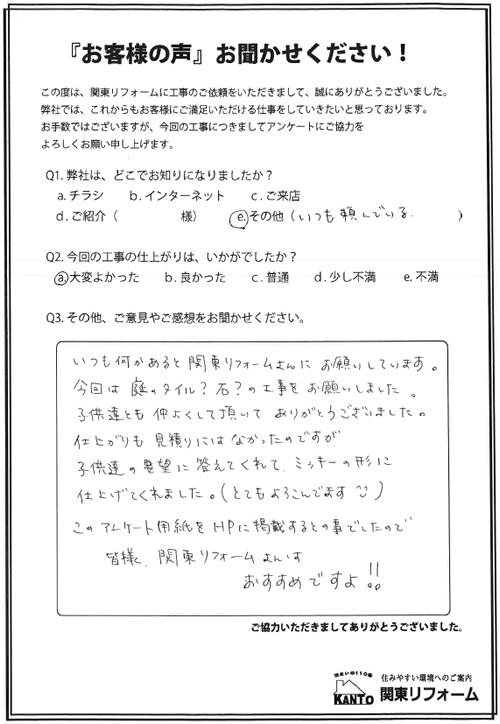 『お客様の声』お聞かせください！
この度は、関東リフォームに工事のご依頼をいただきまして、誠にありがとうございました。
弊社では、これからもお客様にご満足いただける仕事をしていきたいと思っております。
お手数ではございますが、今回の工事につきましてアンケートにご協力を
よろしくお願い申し上げます。
Q1. 弊社は、どこでお知りになりましたか？
a. チラシ　b. インターネット　c. ご来店
d. ご紹介（　　　様）　e. その他（いつも頼んでいる.　）
Q2. 今回の工事の仕上がりは、いかがでしたか？
a. 大変よかった　b. 良かった　c. 普通　d. 少し不満　e. 不満
Q3. その他、ご意見やご感想をお聞かせください。
いつも何かあると関東リフォームさんにお願いしています。
今回は庭のタイル？石？の工事をお願いしました。
子供達とも仲よくして頂いてありがとうございました。
仕上がりも見積りにはなかったのですが
子供達の要望に答えてくれて、ミッキーの形に
仕上げてくれました。（とてもよろこんでます）
このアンケート用紙をHPに掲載するとの事でしたので
皆様、関東リフォームさんは
おすすめですよ!!
ご協力いただきましてありがとうございました。
住まいの110番
KANTO
住みやすい環境へのご案内
関東リフォーム